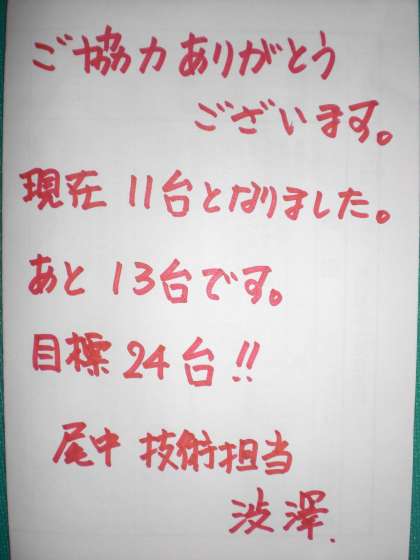 ご協力ありがとう
ございます。
現在 11台となりました。
あと 13台です。
目標 24台!!
尾中 技術担当
渋澤.